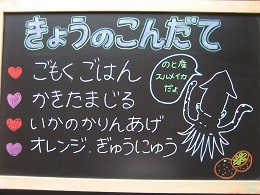 きょうのこんだて
ごもくごはん
かきたまじる
いかのかりんあげ
オレンジ.ぎゅうにゅう
のと産
スルメイカ
だよ